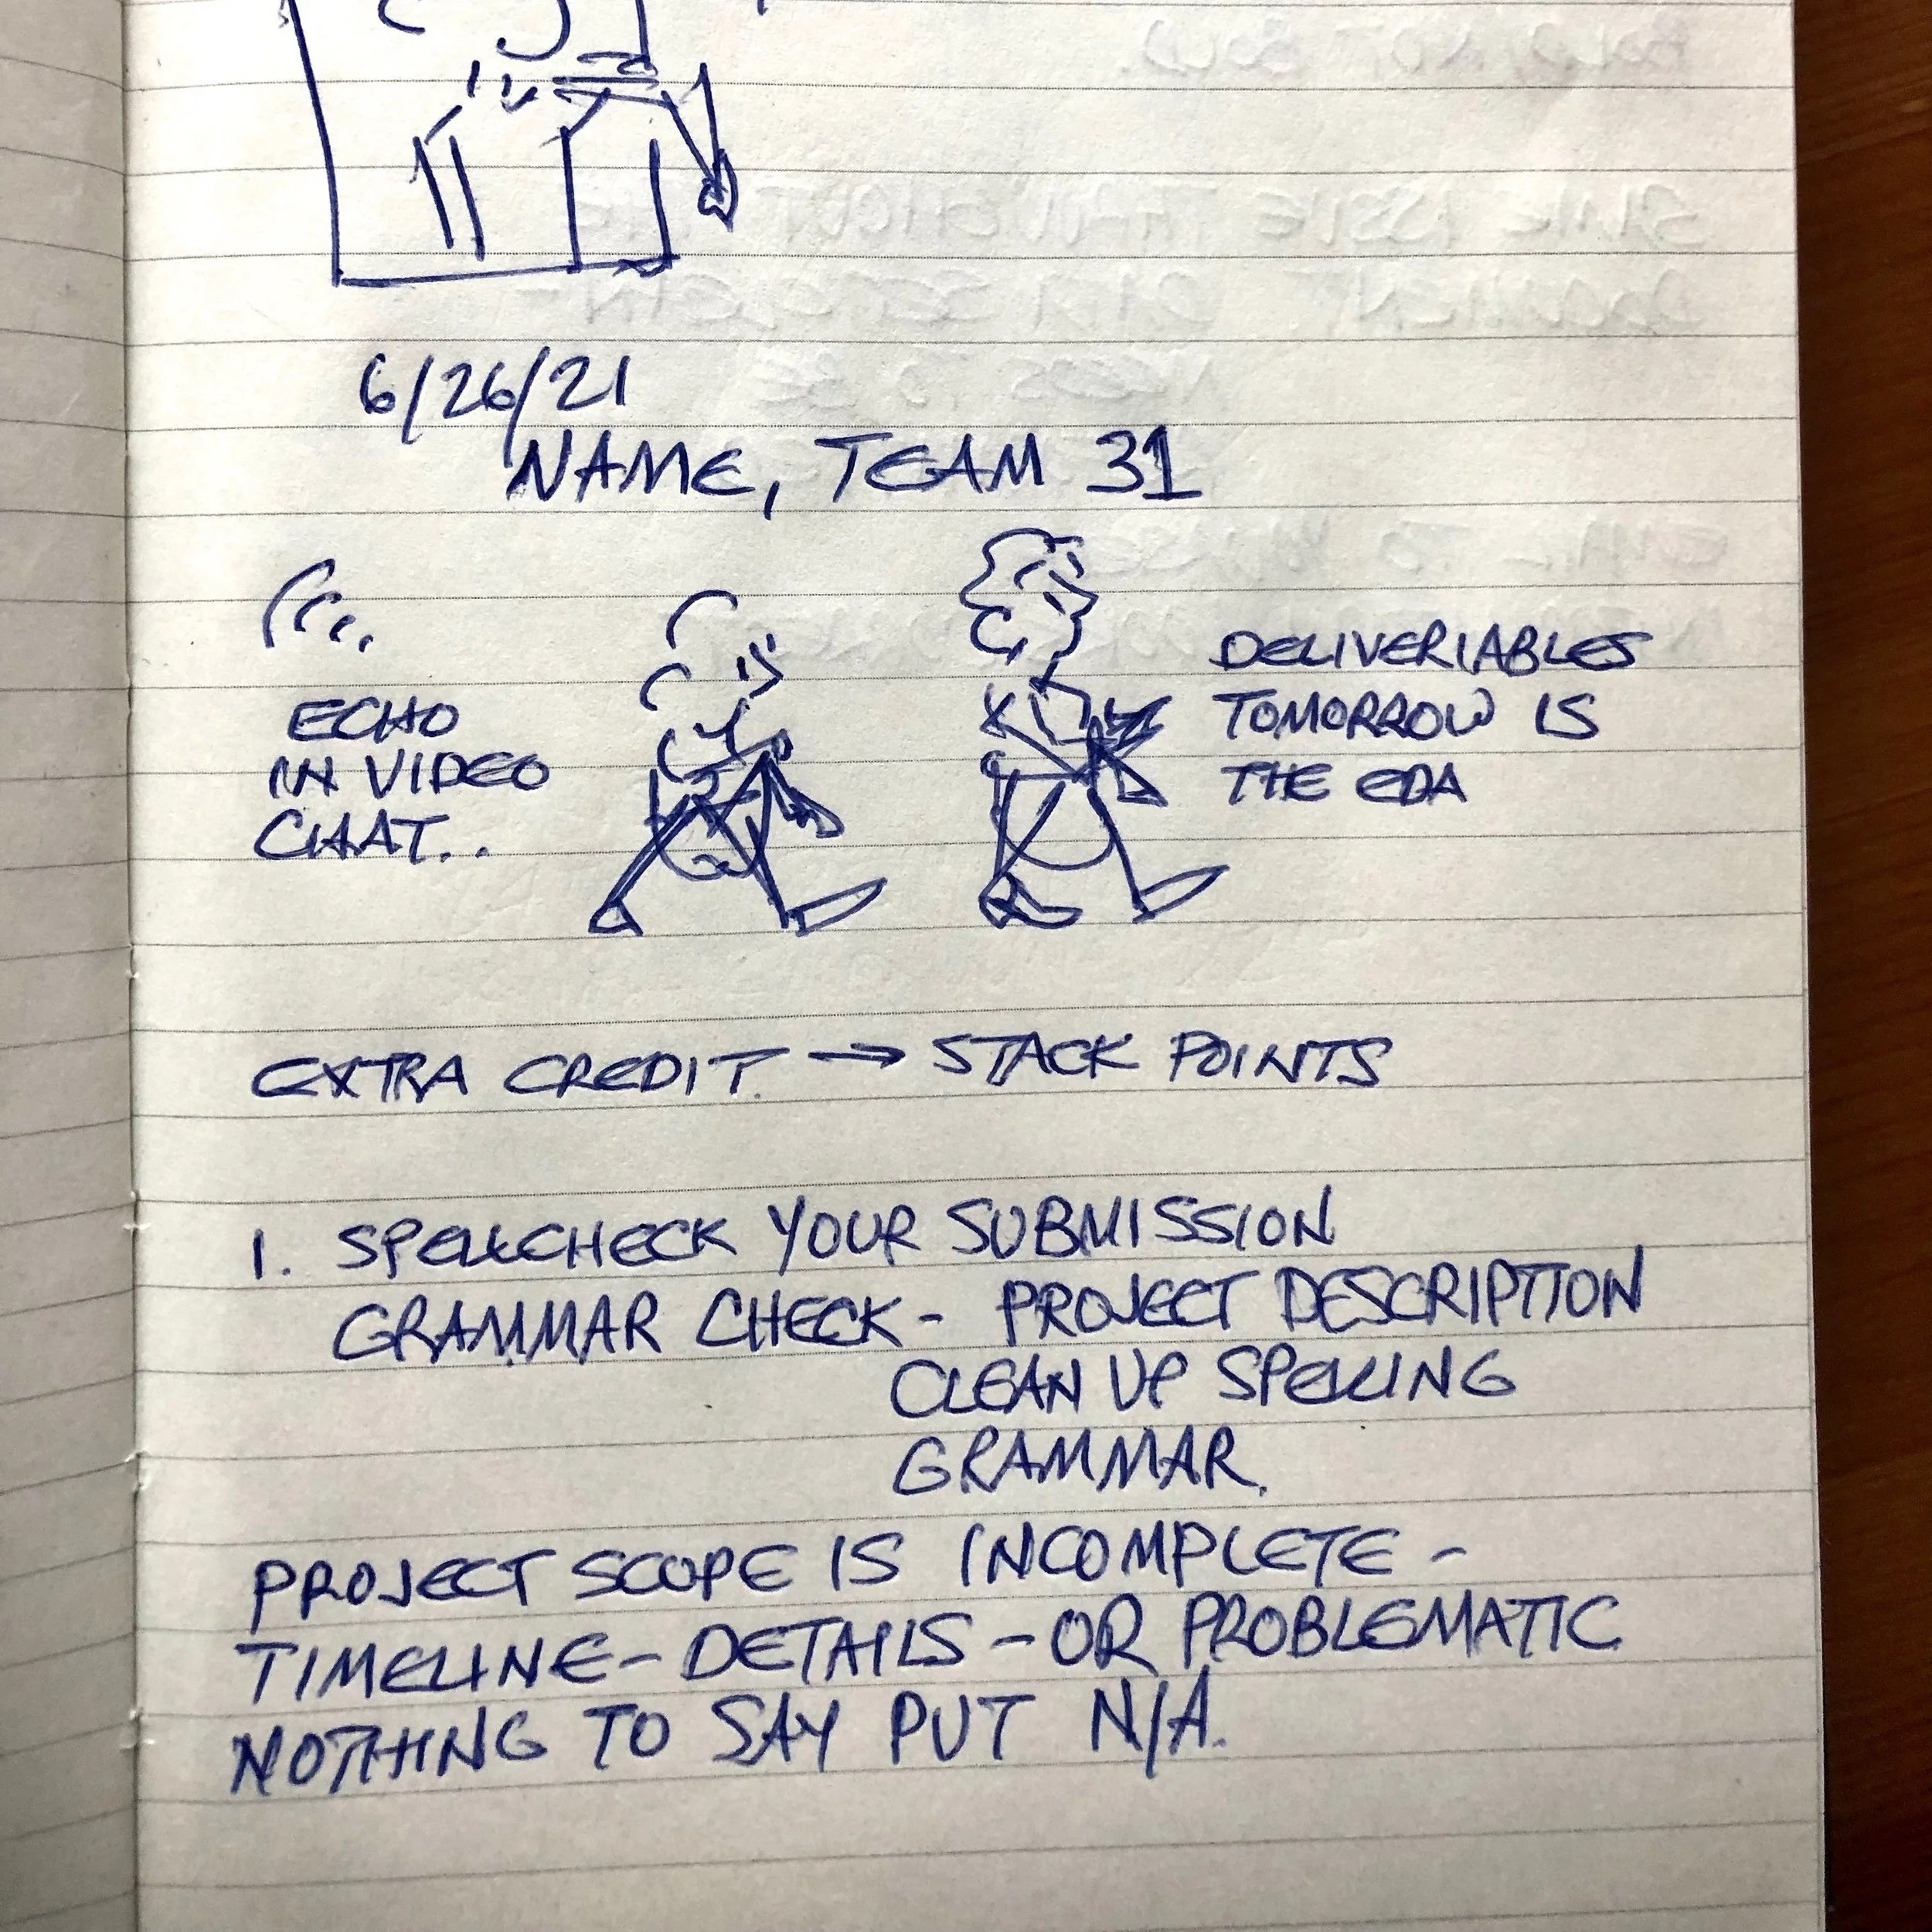 6/26/21
NAME, TEAM 31
ECHO
IN VIDEO
CHAT..
DELIVERIABLES
TOMORROW IS
THE EDA
EXTRA CREDIT. → STACK POINTS
1. SPELLCHECK YOUR SUBMISSION
GRAMMAR CHECK - PROJECT DESCRIPTION
CLEAN UP SPELLING
GRAMMAR.
PROJECT SCOPE IS INCOMPLETE -
TIMELINE - DETAILS - OR PROBLEMATIC
NOTHING TO SAY PUT N/A.